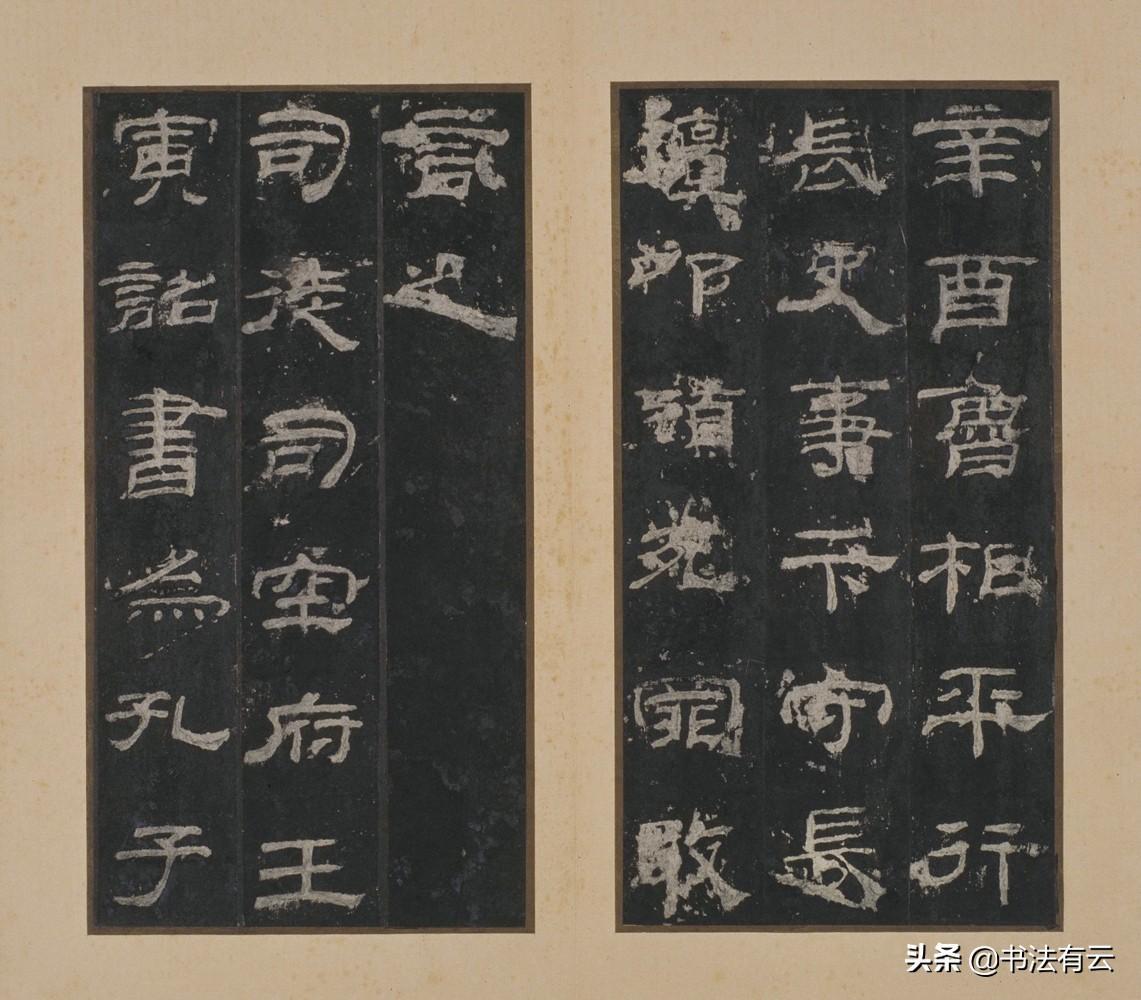 辛酉魯相平行
長史事卞守長
擅叩頭死罪敢
言之
司徒司空府壬
寅詔書為孔子
头条 @书法有云